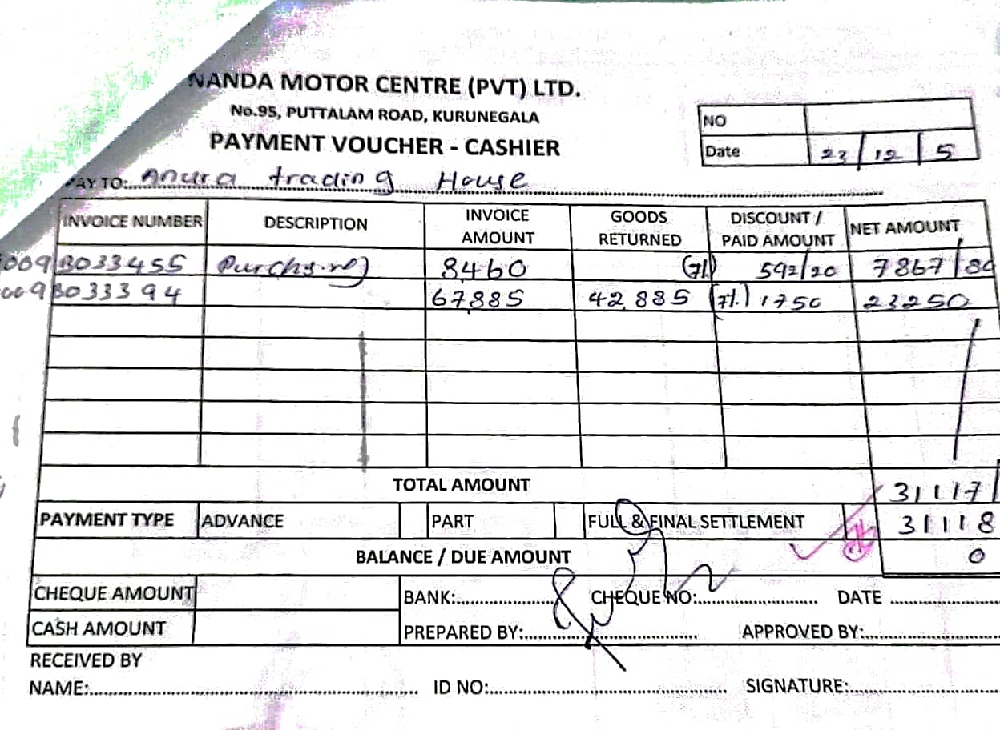 NANDA MOTOR CENTRE (PVT) LTD.
No.95, PUTTALAM ROAD, KURUNEGALA
PAYMENT VOUCHER - CASHIER
NO
Date 23/12/5
PAY TO: Anura trading House
INVOICE NUMBER DESCRIPTION INVOICE AMOUNT GOODS RETURNED DISCOUNT / PAID AMOUNT NET AMOUNT
009B033455 Purchasing 8460 (7%) 592/20 7867/80
009B033394 67885 42885 (7%) 1750 23250
TOTAL AMOUNT 31117
PAYMENT TYPE ADVANCE PART FULL & FINAL SETTLEMENT 31118
BALANCE / DUE AMOUNT 0
CHEQUE AMOUNT BANK: CHEQUE NO: DATE
CASH AMOUNT PREPARED BY: APPROVED BY:
RECEIVED BY
NAME: ID NO: SIGNATURE: